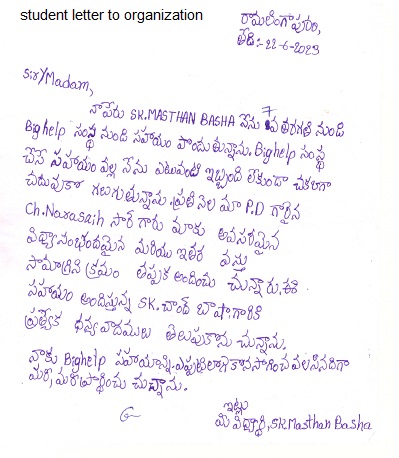 student letter to organization
రామలింగాపురం,
తేది:-22-6-2023
Sir/Madam,
నాపేరు SK.MASTHAN BASHA నేను 7వ తరగతి నుండి
Bighelp సంస్థ నుండి సహాయం పొందుతున్నాను. Bighelp సంస్థ
చేసే సహాయం వల్ల నేను ఎటువంటి ఇబ్బంది లేకుండా చక్కగా
చదువుకో గలుగుతున్నాను. ప్రతి నెల మా P.D గారైన
Ch.Narasaih సార్ గారు మాకు అవసరమైన
విద్యాసంభందమైన మరియు ఇతర వస్తు
సామాగ్రిని క్రమం తప్పక అందించు చున్నారు. ఈ
సహాయం అందిస్తున్న SK.చాంద్ బాషాగారికి
ప్రత్యేక ధన్యవాదములు తెలుపుకొను చున్నాను.
నాకు Bighelp సహాయాన్ని ఎప్పటిలాగే కొనసాగించవలసినదిగా
మరీ, మరీ ప్రార్థించు చున్నాను.
ఇట్లు
మీ విద్యార్థి, SK Masthan Basha